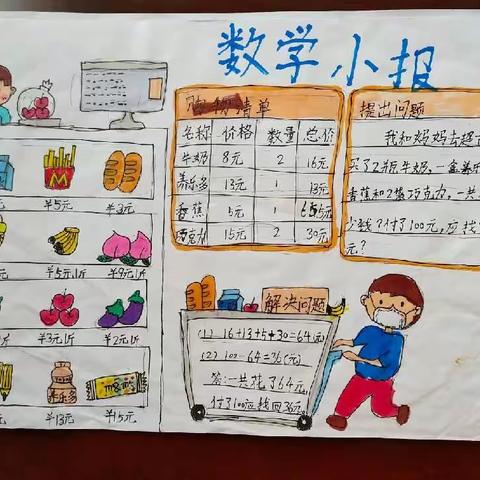 数学小报
购物清单
名称 价格 数量 总价
牛奶 8元 2 16元
养乐多 13元 1 13元
香蕉 5元 1 5元
巧克力 15元 2 30元
提出问题
我和妈妈去超
买了2瓶牛奶,一盒养乐
香蕉和2袋巧克力,一共
少钱?付了100元,应找
元?
解决问题
(1) 16+13+5+30=64(元)
(2) 100-64=36(元)
答:一共花了64元,
付了100应找回36元。
¥5元 ¥3元
¥5元1斤 ¥9元1斤
¥3元1斤 ¥2元1斤
养乐多 m&m's
¥13元 ¥15元